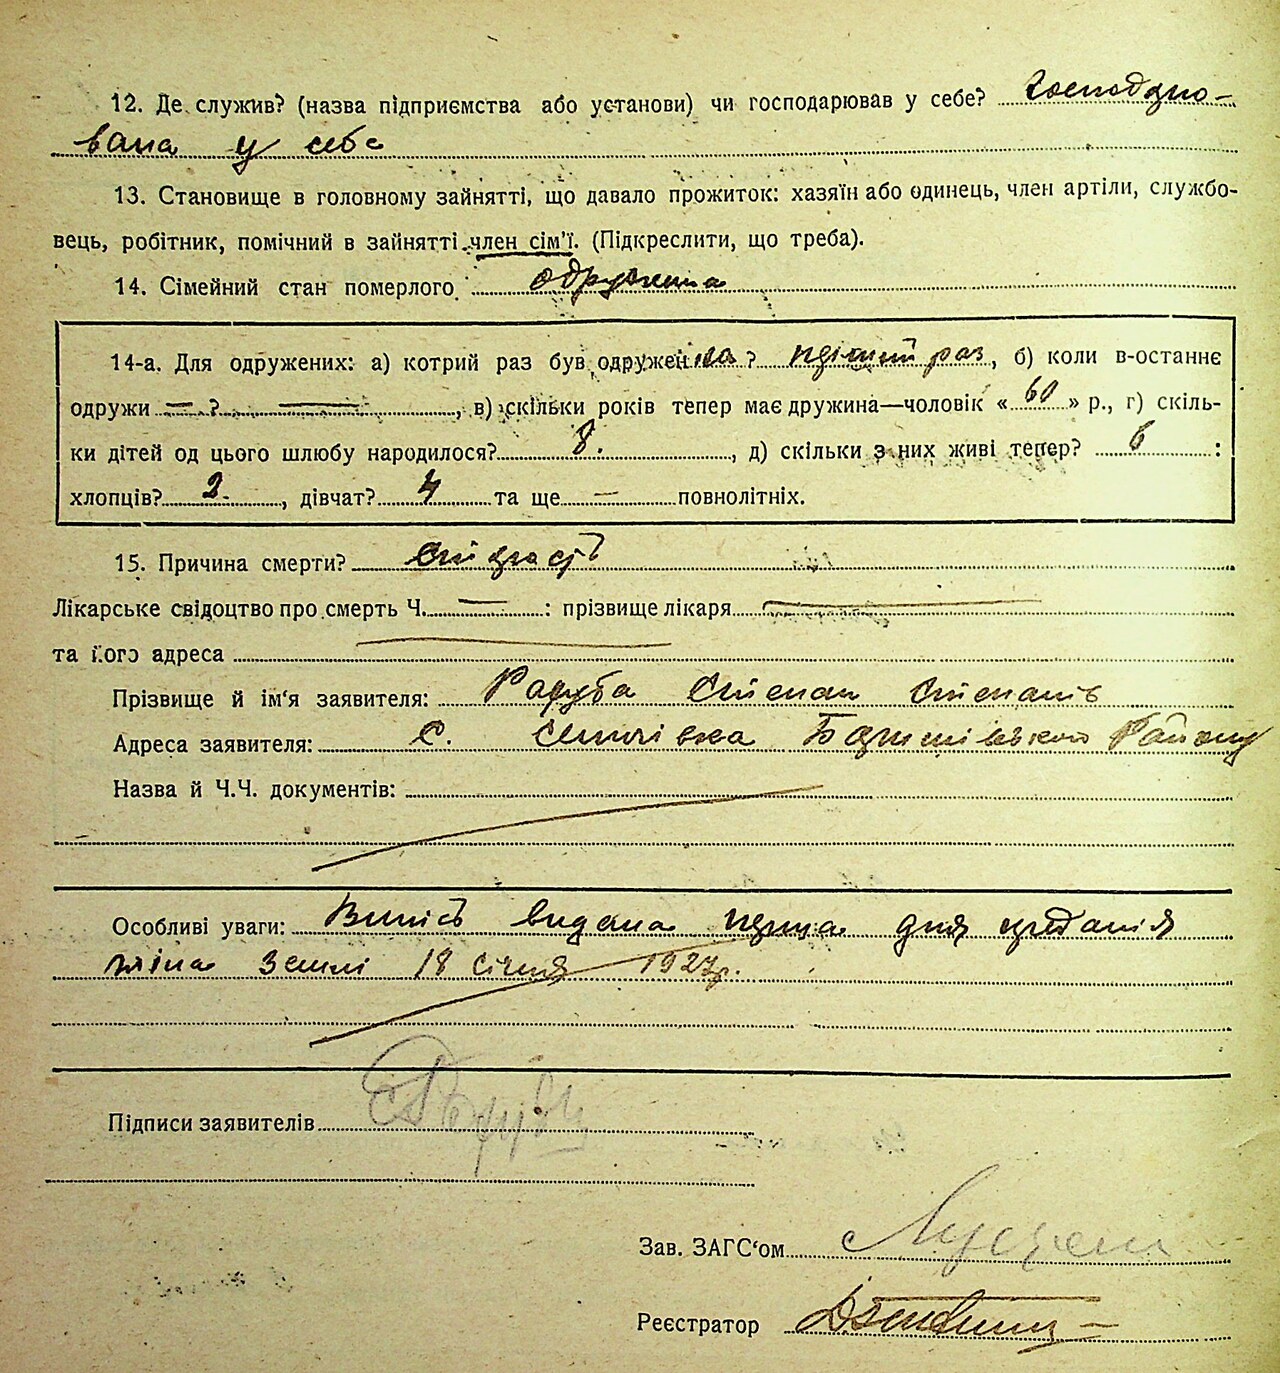 12. Де служив? (назва підприємства або установи) чи господарював у себе? Господарю-
вала у себе
13. Становище в головному зайнятті, що давало прожиток: хазяїн або одинець, член артіли, службо-
вець, робітник, помічний в зайнятті член сім'ї. (Підкреслити, що треба).
14. Сімейний стан померлого одружена
14-а. Для одружених: а) котрий раз був одружен на? перший раз, б) коли в-останнє
одружи — ? —, в) скільки років тепер має дружина—чоловік «60» р., г) скіль-
ки дітей од цього шлюбу народилося? 8., д) скільки з них живі тепер? 6 :
хлопців? 2., дівчат? 4 та ще — повнолітніх.
15. Причина смерти? старість
Лікарське свідоцтво про смерть Ч. — : прізвище лікаря —
та його адреса —
Прізвище й ім'я заявителя: Степан Степанів
Адреса заявителя: с. району
Назва й Ч.Ч. документів:
Особливі уваги: Випись видана перша для
тіла землі 18 січня 1927р.
Підписи заявителів
Зав. ЗАГС'ом
Реєстратор